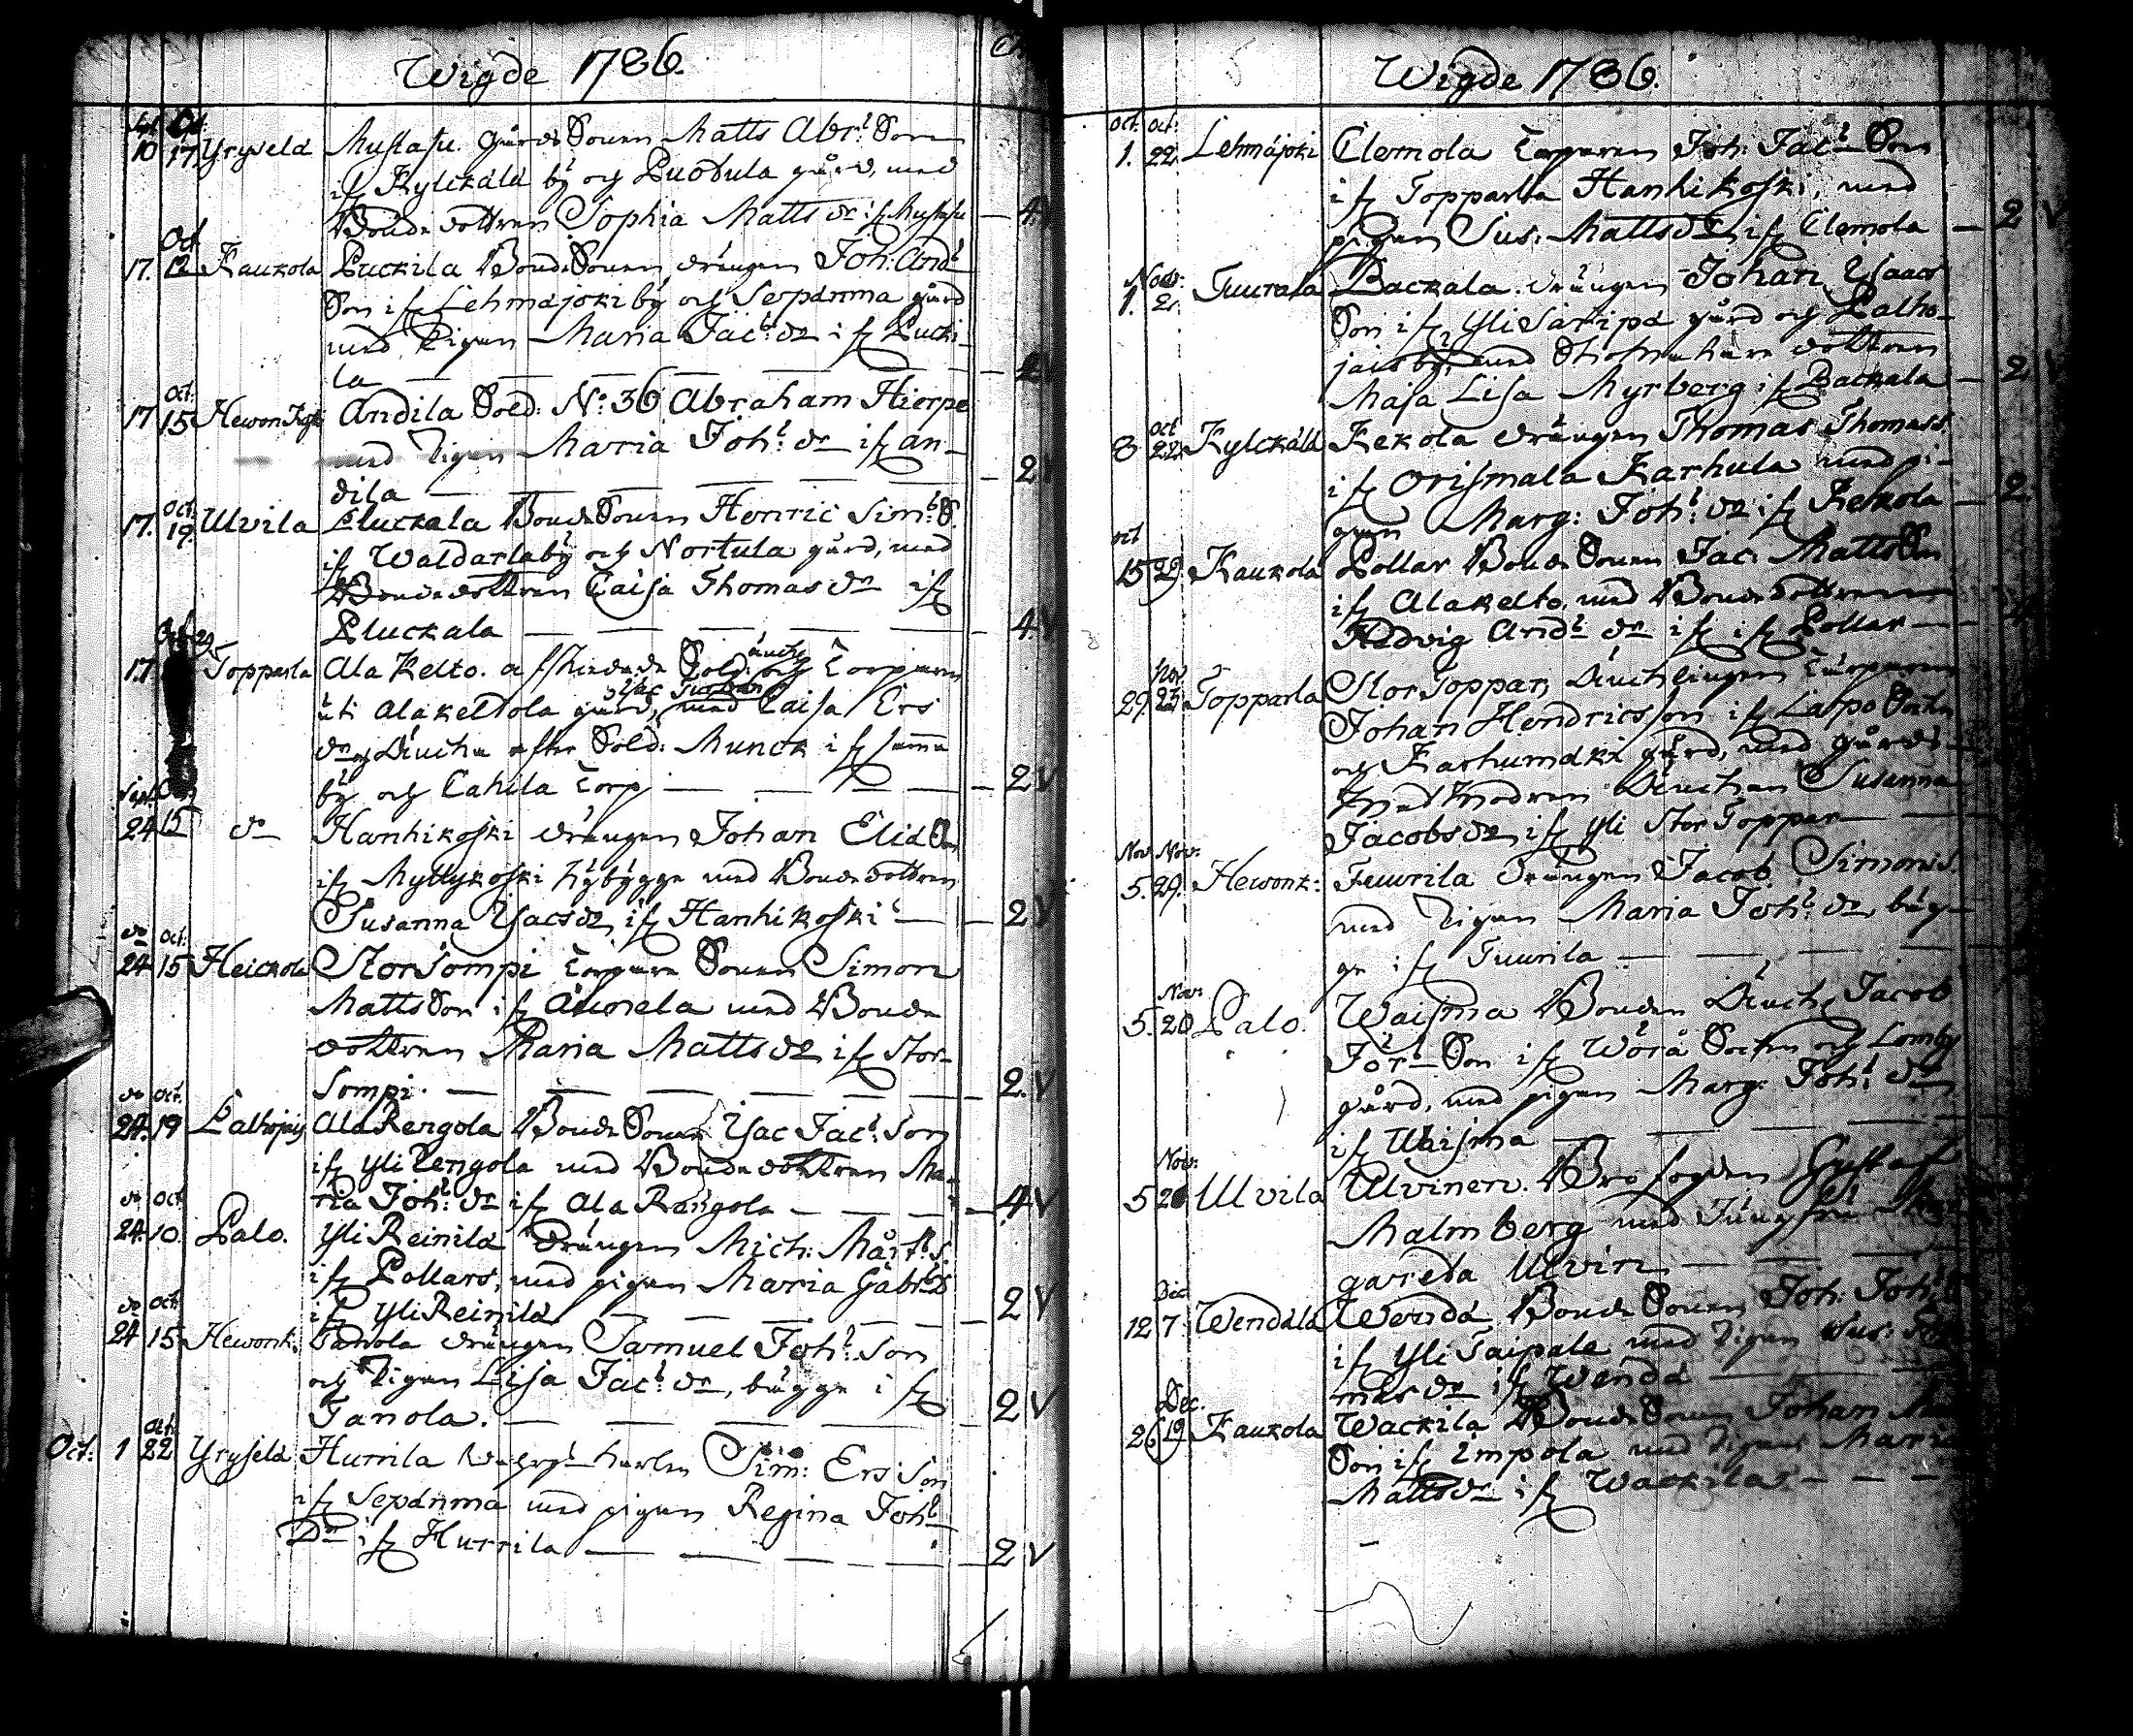 Wigde 1786.
Sept. Oct.
10 17 Yryselä Mustasu. Gårds Sonen Matts Abr: Son
if Kylckälä bÿ och Puostula gård, med
Bonde dottren Sophia Matts dr if Mustasu — 4. V
Oct
17. 12 Kaukola Puckila BondeSonen, drängen Joh: And:
Son if Lehmäjoki bÿ och Sepänmä gård
med Pigan Maria Jac: dr if Pucki-
la — — — — — — 2 V
Oct.
17 15 Hewonkosk Andila Sold: No: 36 Abraham Hierpe
med Pigan Maria Joh: dr if An-
dila — — — — — 2 V
Oct.
17. 19. Ulvila Pluckala BondeSonen Henric Sim: S.
if Waldarla bÿ och Nortula gård, med
Bondedottren Caisa Thomas dr if
Pluckala — — — — — 4. V
Oct. 29
17. Topparla Ala Kelto. afskedade Sold: och Torparen
änkl:
uti Alakeltola gård, med Caisa Ers
dr och Änckia efter Sold: Munck if samma
bÿ och Cahila Torp — — — — 2 V
Sept. Oct.
24 15 do Hanhikoski drängen Johan Eliæ Son
if Myllykoski Nÿbÿgge med Bondedottren
Susanna Ysacs dr, if Hanhikoski — — 2 V
do Oct:
24 15 Heickola StorSompi Torpare Sonen Simon
Matts Son if Äunela med Bonde
dottren Maria Matts dr, if Stor-
Sompi. — — — — — 2. V
do Oct.
24. 19 Palhojais Ala Rengola BondeSonen Ysac Jac: Son
if Yli Rengola med Bondedottren Ma-
ria Joh: dr if Ala Rengola — — — 4 V
do Oct
24. 10. Palo. Yli Reinilä Drängen Mich: Mårt: S.
if Pollars, med pigan Maria Gabr: d
if Yli Reinilä — — — — 2 V
do Oct
24 15 Hewonk: Tanola drängen Samuel Joh: Son
och Pigan Lisa Jac: dr, bägge if
Tanola. — — — — — 2 V
Oct.
Oct: 1 22 Yryselä Hurrila Sim: Ers Son
if Sepänmä med pigan Regina Joh:
Dr if Hurrila — — — — 2 V
Wigde 1786.
Oct. Oct.
1. 22. Lehmäjoki Clemola Torparen Joh: Jac: Son
if Topparla Hanhikoski, med
pigan Sus: Matts dr, if Clemola — 2 V
Nov:
1. 2. Tuurala Backala. drängen Johan Ysaacs
Son if Yli Saripä gård och Palho-
jais bÿ, med dottren
Maja Lisa Myrberg if Backala — 2 V
Oct
8 22. Kylckälä Kekola drängen Thomas Thomas S.
if Orismala Karhula med pi-
gan Marg: Joh: dr if Kekola — 2.
Oct
15 29. Kaukola Pollar Bonde Sonen Jac: Matts Son
if Alakelto, med Bondedottren
Hedvig And: dr if if Pollar —
Nov.
29. 23 Topparla StorToppar, Änklingen Torparen
Johan Hendricsson if Lapo Sockn
och Karhumäki gård, med Gårds-
modren Änckian Susanna
Jacobs dr, if Yli Stor Toppar —
Nov. Nov:
5. 29. Hewonk: Tuurila Drängen Jacob Simons S.
med Pigan Maria Joh: dr, bäg-
ge if Tuurila — — —
Nov:
5. 20 Palo. Waisma Bonden Änckl: Jacob
Jör: Son if Wörå Sockn och Lomby
gård, med pigan Marg: Joh: dr
if Waisma — — — —
Nov:
5 26 Ulvila Ulvinen. Bro fogden Gustaf
Malmberg med Jungfru
gareta Ulvin — — —
Dec
12 7. Wendälä Wendä Bonde Sonen Joh: Joh:
if Yli Saipale med Pigan Sus: Tho-
mas dr if Wendä — —
Dec.
26 19 Kaukola Wackila Bonde Sonen Johan
Son if Impola med Pigan Maria
Matts dr if Wackila — — —